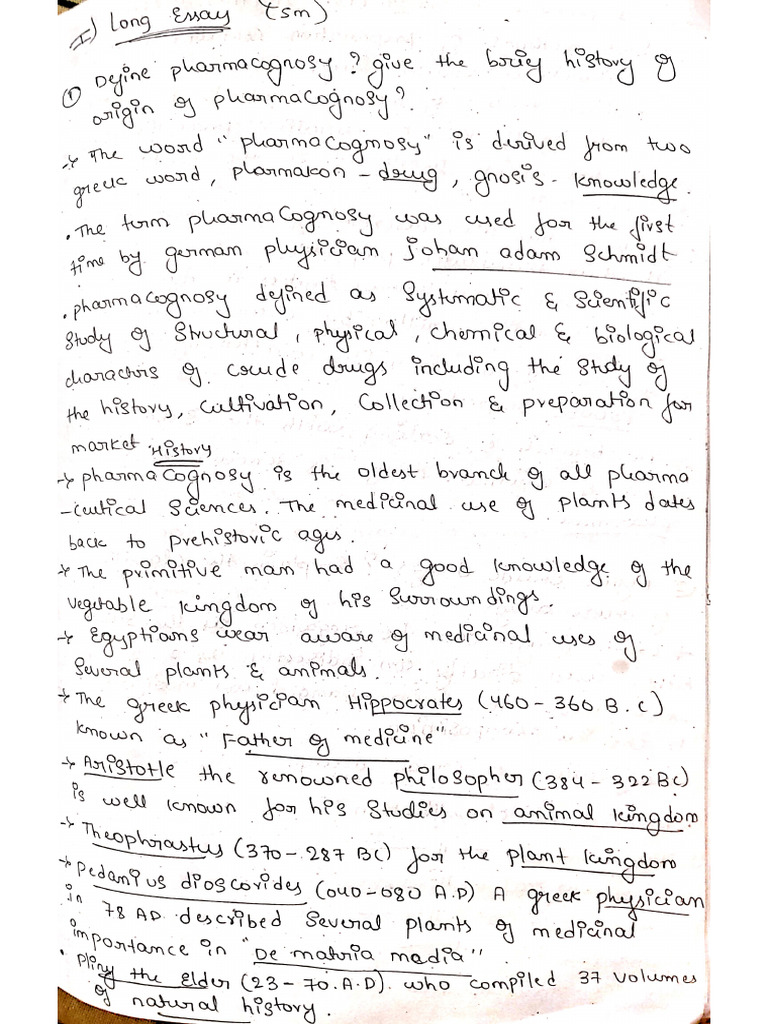 I) Long Essay (5m)
① Define pharmacognosy? give the briey history of
origin of pharmacognosy?
→ The word "pharmacognosy" is derived from two
greek word, pharmakon - drug, gnosis - knowledge.
. The term pharmacognosy was used for the first
time by german physician Johan adam Schmidt
. pharmacognosy defined as Systmatic & Scientific
Study of Structural, physical, chemical & biological
charactors of coude drugs including the study of
the history, cultivation, Collection & preparation for
market.
History
→ pharmacognosy is the oldest branch of all pharma
-ceutical Sciences. The medicinal use of plants dates
back to prehistoric ages.
→ The primitive man had a good knowledge of the
vegetable kingdom of his surroundings.
→ Egyptians wear aware of medicinal uses of
Several plants & animals.
→ The greek physician Hippocrates (460 - 360 B.C)
known as "Father of medicine"
→ Aristotle the renowned philosopher (384 - 322 BC)
is well known for his Studies on animal kingdom
→ Theophrastus (370 - 287 BC) for the plant kingdom
→ Pedanius dioscorides (040-080 A.D) A greek physician
in 78 AD described Several plants of medicinal
importance in "De matria madia"
. Pliny the Elder (23 - 70. A.D). who compiled 37 volumes
of natural history.